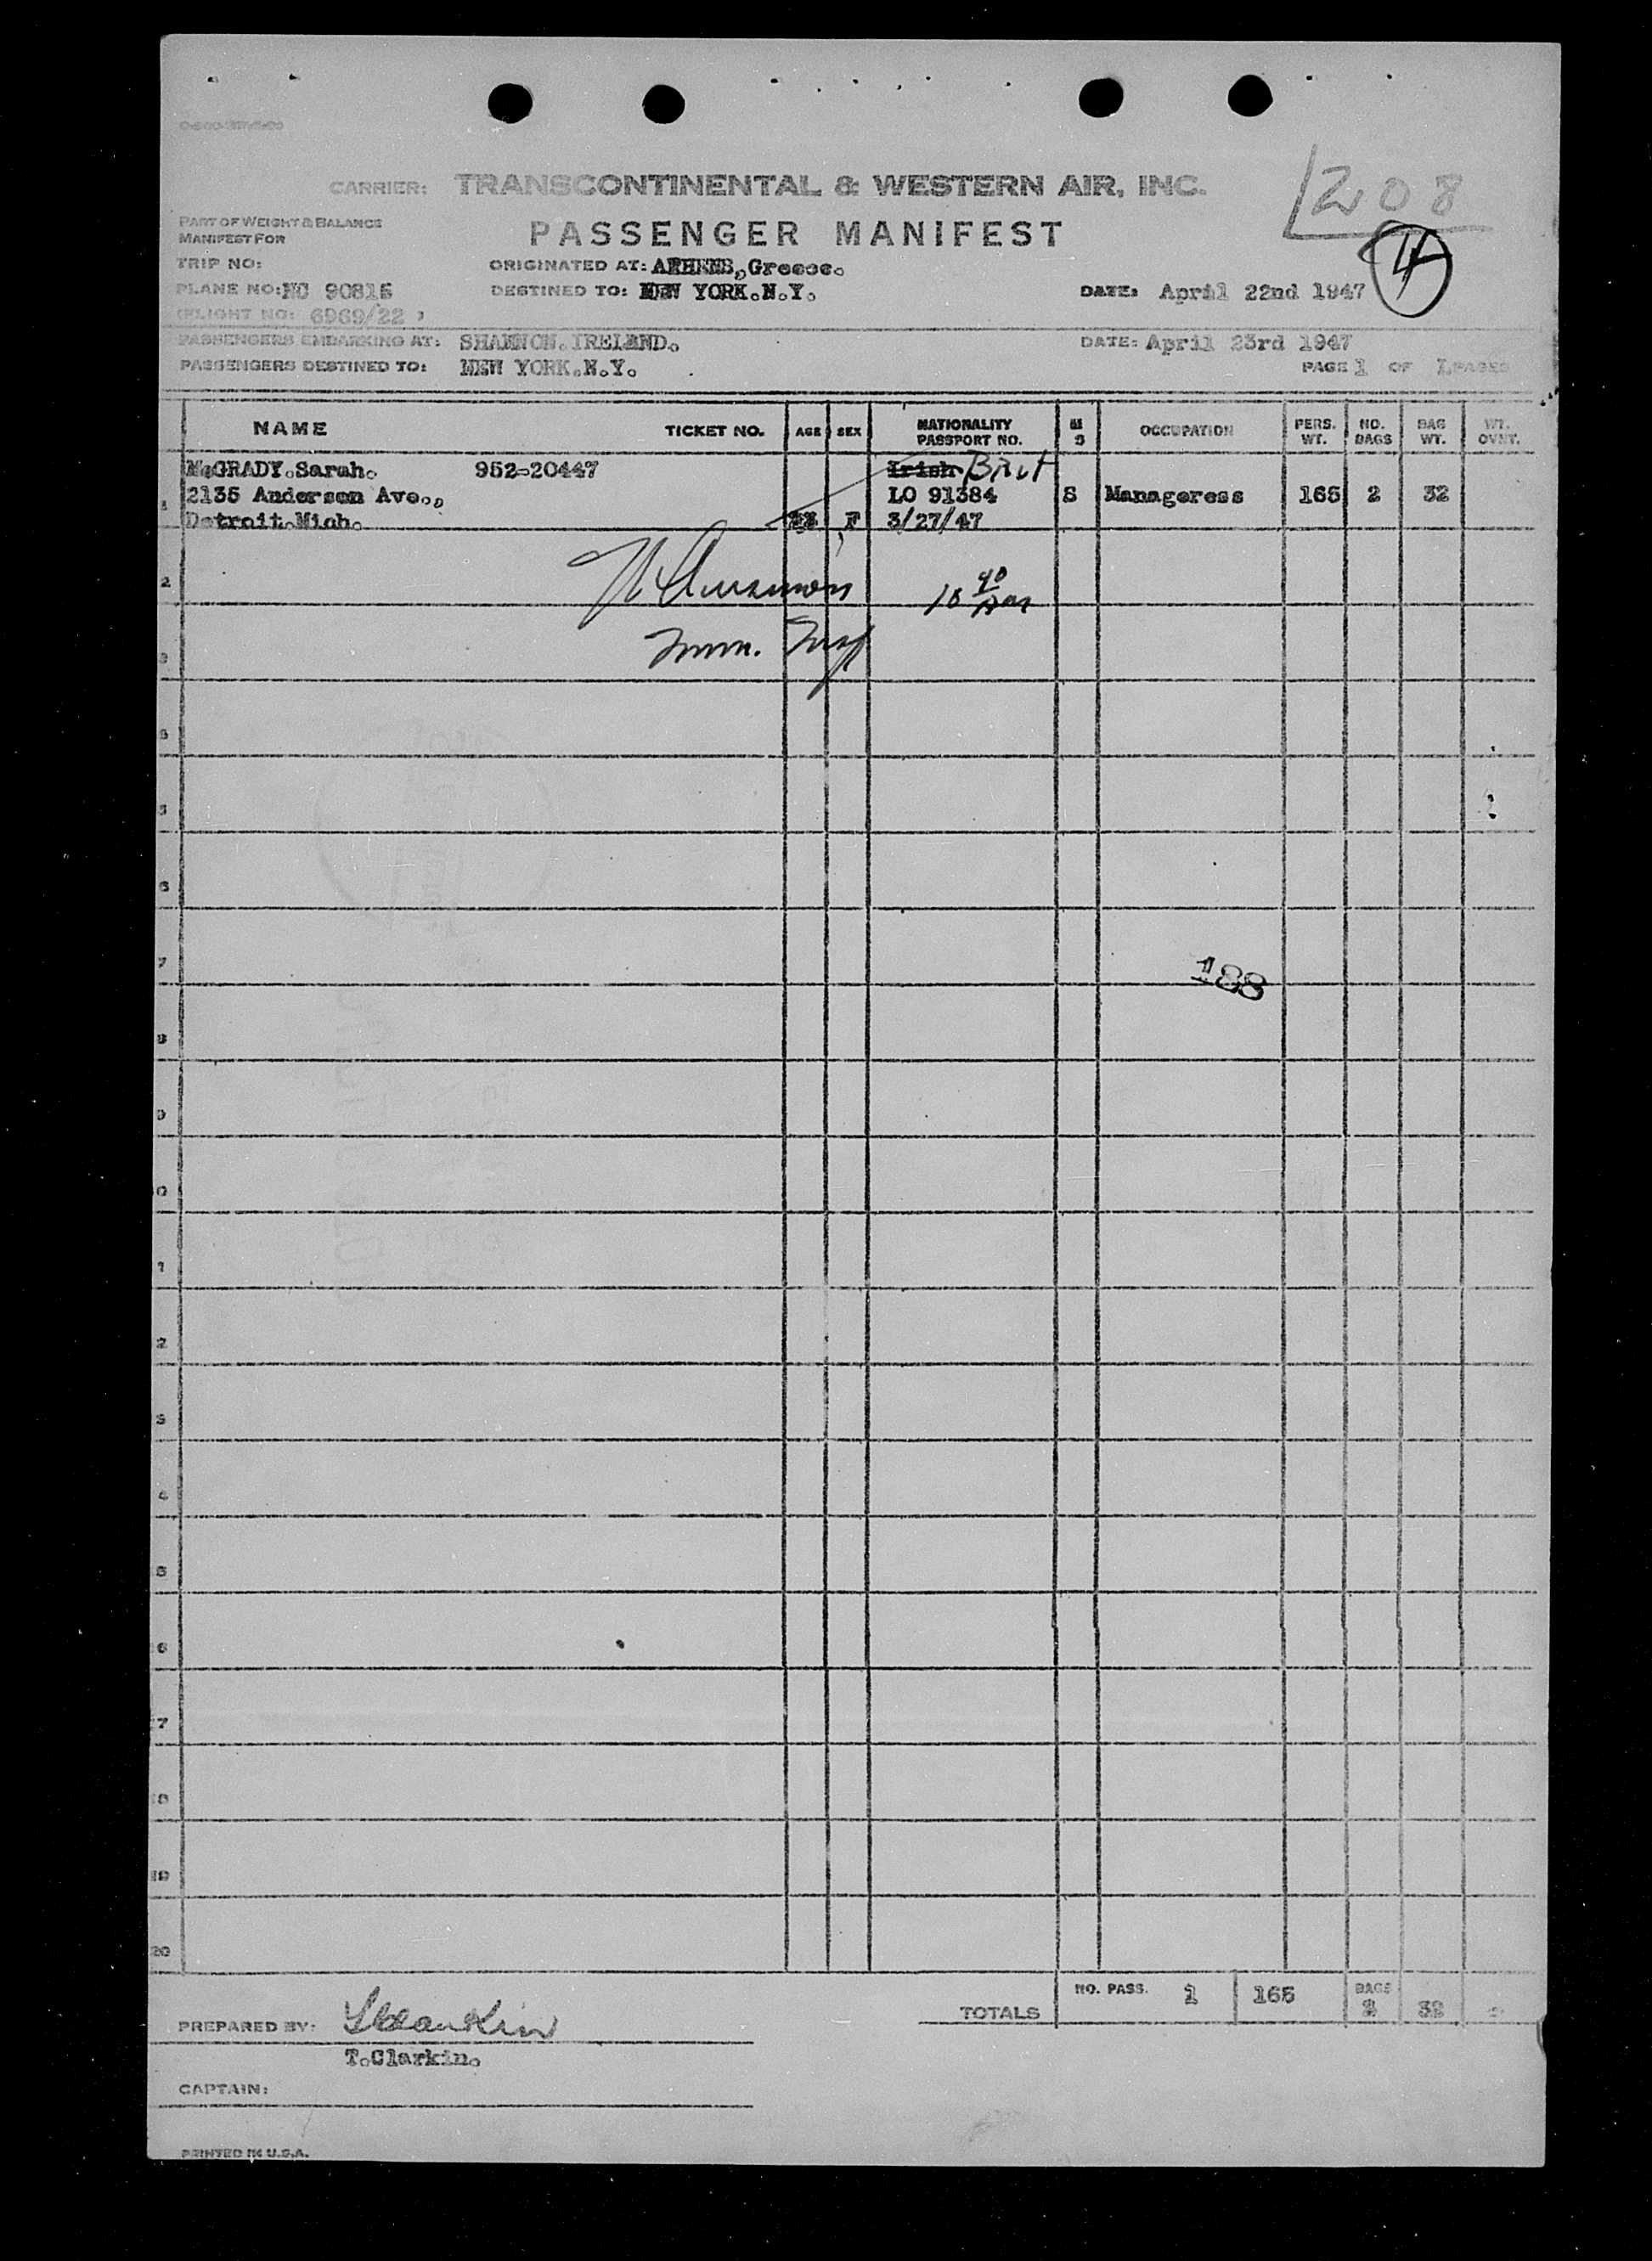 CARRIER: TRANSCONTINENTAL & WESTERN AIR, INC.
1208
PART OF WEIGHT & BALANCE
MANIFEST FOR
PASSENGER MANIFEST
4
TRIP NO:
ORIGINATED AT: ATHENS, Greece.
PLANE NO: NC 90815
DESTINED TO: NEW YORK.N.Y.
DATE: April 22nd 1947
(FLIGHT NO: 6969/22 )
PASSENGERS EMBARKING AT: SHANNON.IRELAND.
DATE: April 23rd 1947
PASSENGERS DESTINED TO: NEW YORK.N.Y.
PAGE 1 OF 1 PAGES
NAME TICKET NO. AGE SEX NATIONALITY PASSPORT NO. M S OCCUPATION PERS. WT. NO. BAGS BAG WT. WT. OVNT.
McGRADY.Sarah. 952-20447 Irish Brit
1 2135 Anderson Ave., LO 91384 S Manageress 165 2 32
Detroit.Mich. F 3/27/47
2
10 40
3 Imm. Insp
5
6
7
188
8
9
0
1
2
3
4
5
6
17
18
19
20
TOTALS NO. PASS. 1 165 BAGS 2 32
PREPARED BY: T Clarkin
T.Clarkin.
CAPTAIN:
PRINTED IN U.S.A.